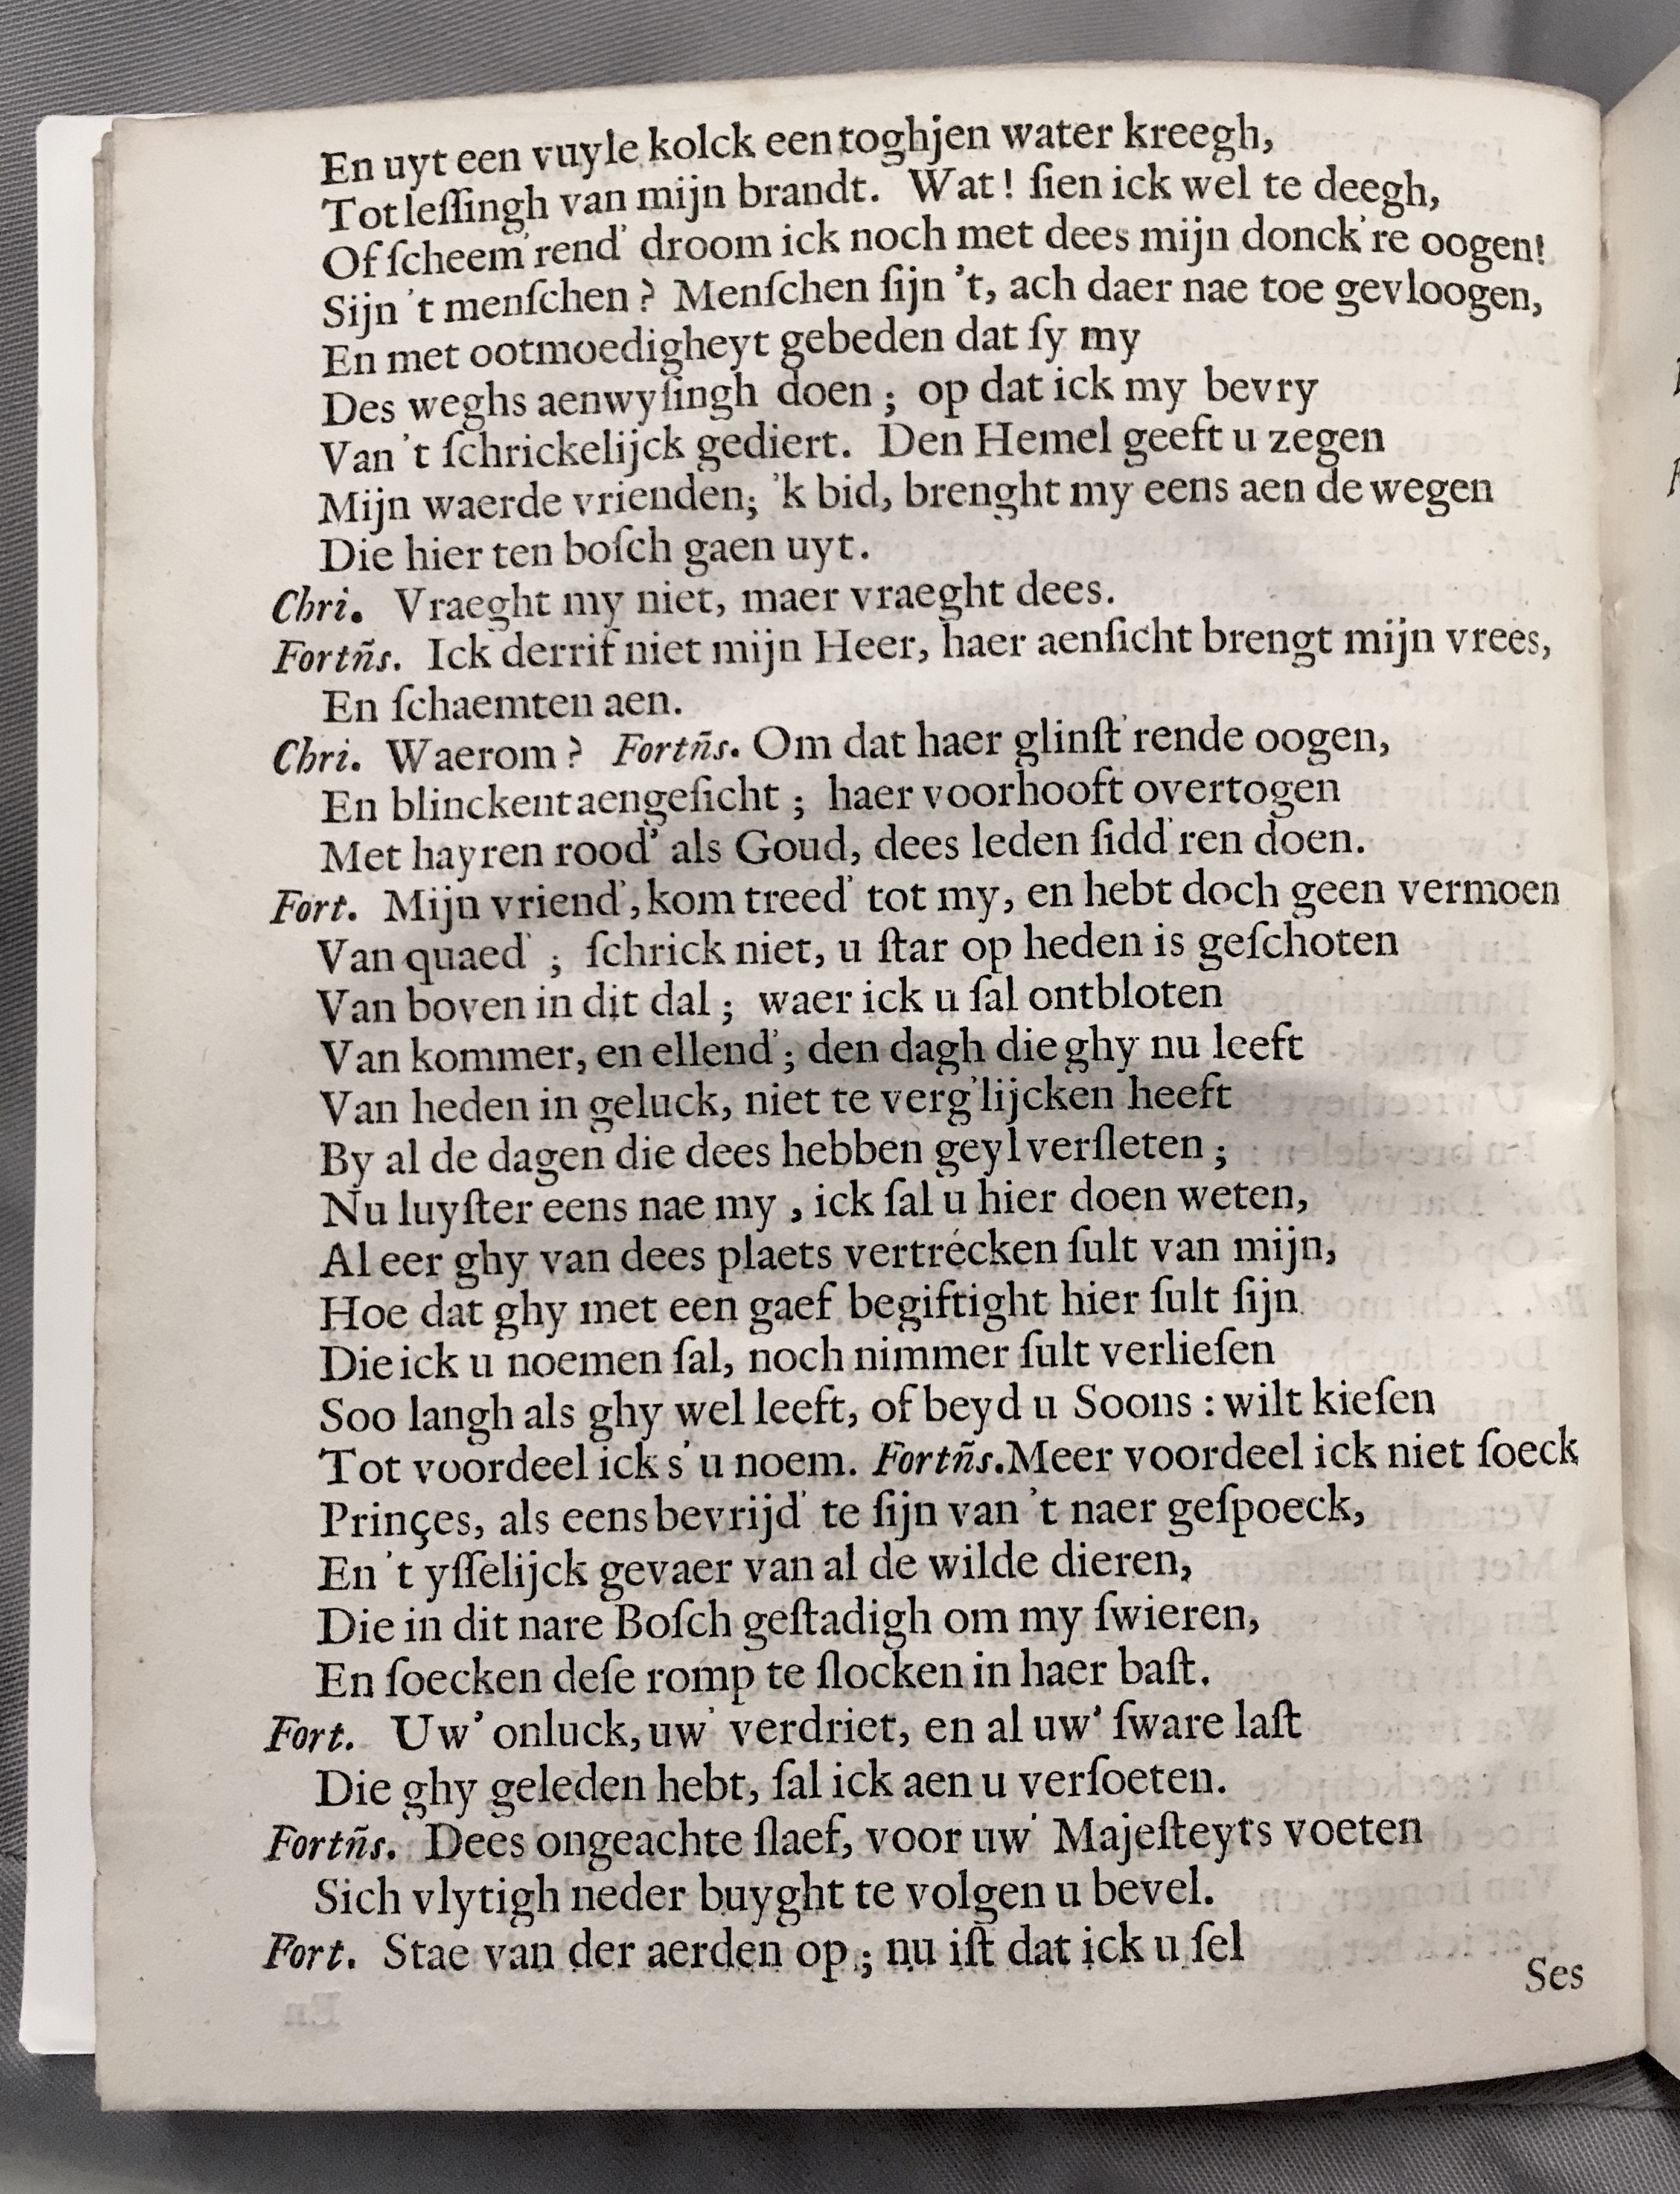 En uyt een vuyle kolck een toghjen water kreegh,
Tot leſſingh van mijn brandt. Wat! ſien ick wel te deegh,
Of ſcheem'rend' droom ick noch met dees mijn donck're oogen!
Sijn 't menſchen? Menſchen ſijn 't, ach daer nae toe gevloogen,
En met ootmoedigheyt gebeden dat ſy my
Des weghs aenwyſingh doen; op dat ick my bevry
Van 't ſchrickelijck gediert. Den Hemel geeft u zegen
Mijn waerde vrienden; 'k bid, brenght my eens aen de wegen
Die hier ten boſch gaen uyt.
Chri. Vraeght my niet, maer vraeght dees.
Fortñs. Ick derrif niet mijn Heer, haer aenſicht brengt mijn vrees,
En ſchaemten aen.
Chri. Waerom? Fortñs. Om dat haer glinſt'rende oogen,
En blinckent aengeſicht; haer voorhooft overtogen
Met hayren rood' als Goud, dees leden ſidd'ren doen.
Fort. Mijn vriend', kom treed' tot my, en hebt doch geen vermoen
Van quaed'; ſchrick niet, u ſtar op heden is geſchoten
Van boven in dit dal; waer ick u ſal ontbloten
Van kommer, en ellend'; den dagh die ghy nu leeft
Van heden in geluck, niet te verg'lijcken heeft
By al de dagen die dees hebben geyl verſleten;
Nu luyſter eens nae my, ick ſal u hier doen weten,
Al eer ghy van dees plaets vertrécken ſult van mijn,
Hoe dat ghy met een gaef begiftight hier ſult ſijn
Die ick u noemen ſal, noch nimmer ſult verlieſen
Soo langh als ghy wel leeft, of beyd u Soons: wilt kieſen
Tot voordeel ick s' u noem. Fortñs. Meer voordeel ick niet ſoeck
Prinçes, als eens bevrijd' te ſijn van 't naer geſpoeck,
En 't yſſelijck gevaer van al de wilde dieren,
Die in dit nare Boſch geſtadigh om my ſwieren,
En ſoecken deſe romp te ſlocken in haer baſt.
Fort. Uw' onluck, uw' verdriet, en al uw' ſware laſt
Die ghy geleden hebt, ſal ick aen u verſoeten.
Fortñs. Dees ongeachte ſlaef, voor uw' Majeſteyts voeten
Sich vlytigh neder buyght te volgen u bevel.
Fort. Stae van der aerden op; nu iſt dat ick u ſel
Ses